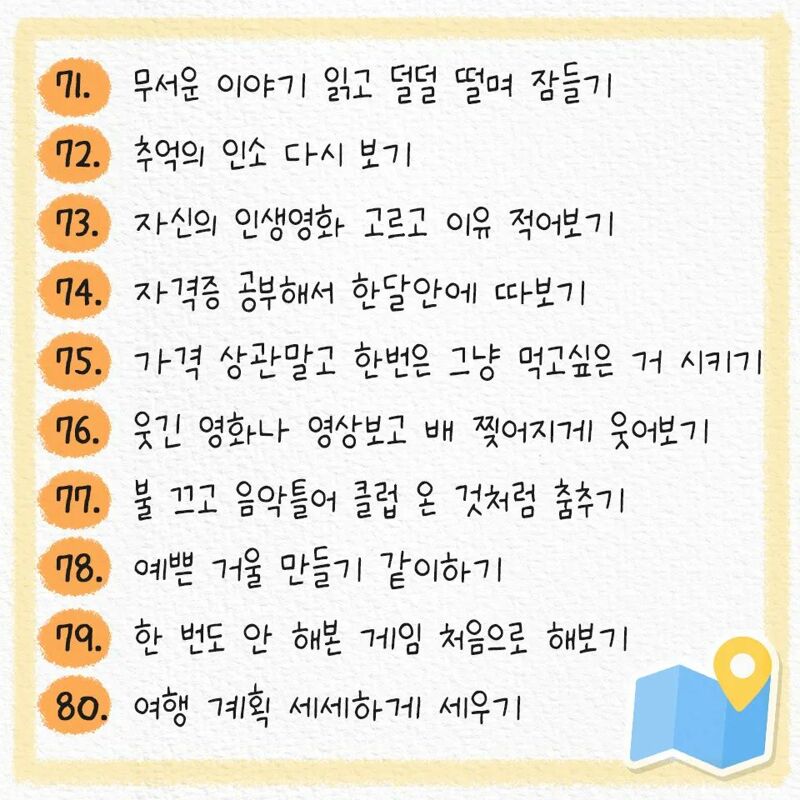 71. 무서운 이야기 읽고 덜덜 떨며 잠들기
72. 추억의 인소 다시 보기
73. 자신의 인생영화 고르고 이유 적어보기
74. 자격증 공부해서 한달안에 따보기
75. 가격 상관말고 한번은 그냥 먹고싶은 거 시키기
76. 웃긴 영화나 영상보고 배 찢어지게 웃어보기
77. 불 끄고 음악틀어 클럽 온 것처럼 춤추기
78. 예쁜 거울 만들기 같이하기
79. 한 번도 안 해본 게임 처음으로 해보기
80. 여행 계획 세세하게 세우기